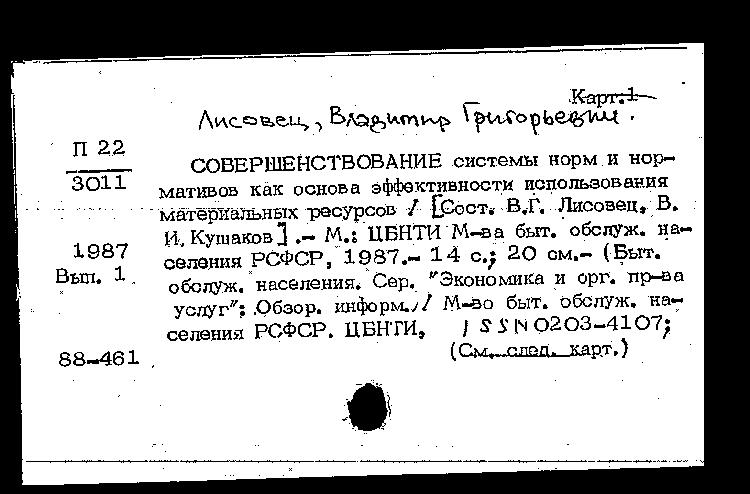 Карт.1
Лисовец, Владимир Григорьевич.
П 22
3011
1987
Вып. 1
88-461
СОВЕРШЕНСТВОВАНИЕ системы норм и нор-
мативов как основа эффективности использования
материальных ресурсов / [Сост. В.Г. Лисовец, В.
И. Кушаков] .- М.: ЦБНТИ М-ва быт. обслуж. на-
селения РСФСР, 1987.- 14 с.; 20 см.- (Быт.
обслуж. населения. Сер. "Экономика и орг. пр-ва
услуг"; Обзор. информ. // М-во быт. обслуж. на-
селения РСФСР. ЦБНТИ, ISSN 0203-4107;
(См. след. карт.)